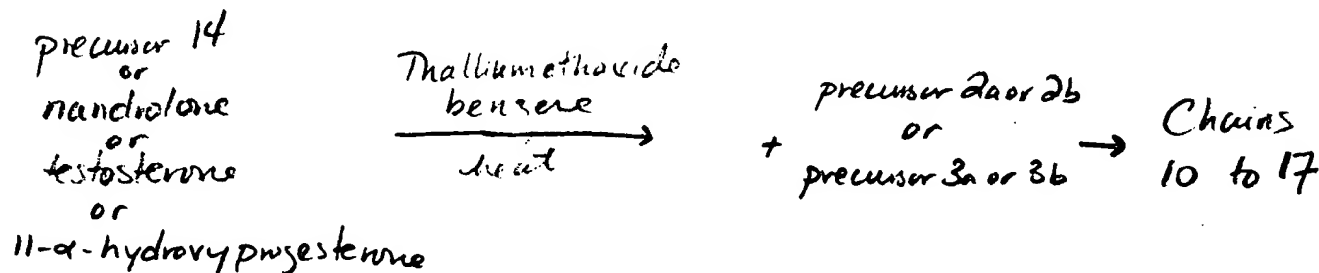 precursor 14
or
nandrolone
or
testosterone
or
11-α-hydroxyprogesterone
Thalliumethoxide
benzene
heat
+
precursor 2a or 2b
or
precursor 3a or 3b
→
Chains
10 to 17